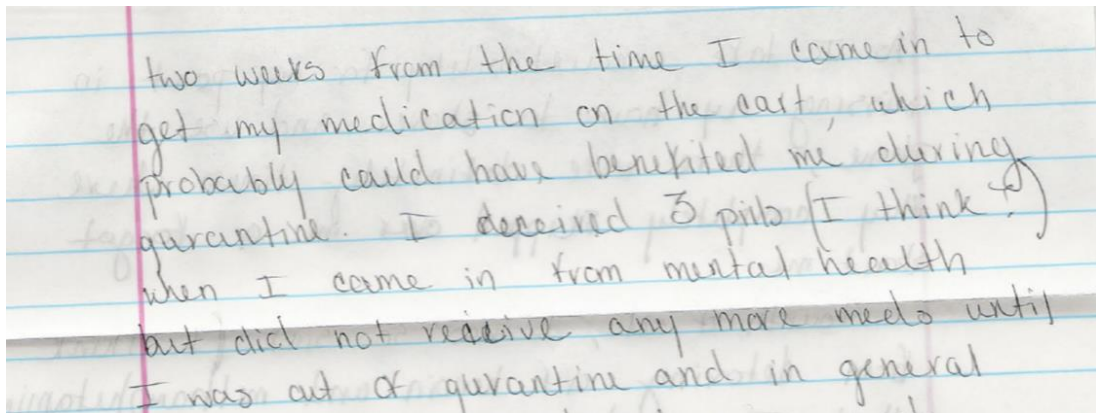 two weeks from the time I came in to
get my medication on the cart, which
probably could have benefited me during
qurantine. I deceived 3 pills (I think?)
when I came in from mental health
but did not receive any more meds until
I was out of qurantine and in general